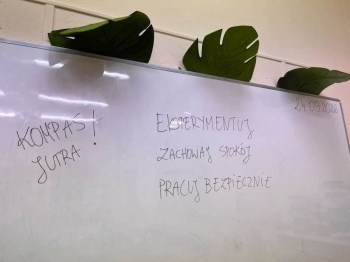 24.09.2025
KOMPAS!
JUTRA
EKSPERYMENTUJ
ZACHOWAJ SPOKÓJ
PRACUJ BEZPIECZNIE